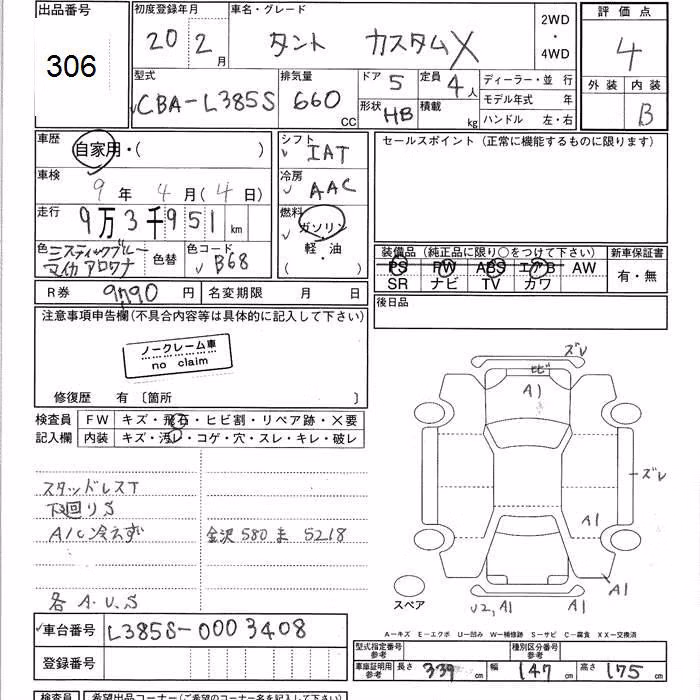 出品番号 初度登録年月 車名・グレード 2WD ・ 4WD 評価点
306 20 2月 タント カスタムX 4
型式 排気量 ドア 5 定員 4人 ディーラー・並行 外装 内装
CBA-L385S 660 CC 形状 HB 積載 kg モデル年式 年 B
ハンドル 左・右
車歴 自家用・( ) シフト IAT セールスポイント(正常に機能するものに限ります)
車検 9年 4月(4日) 冷房 AAC
走行 9万3千951km 燃料 ガソリン・軽・油 ( )
色 ミスティックブルーマイカ アロワナ 色替 色コード B68
装備品(純正品に限り○をつけて下さい) 新車保証書
PS PW ABS エアB AW 有・無
SR ナビ TV カワ
R券 9790円 名変期限 月 日 後日品
注意事項申告欄(不具合内容等は具体的に記入して下さい)
ノークレーム車
no claim
修復歴 有 〔箇所 〕
検査員 FW キズ・飛石・ヒビ割・リペア跡・X要
記入欄 内装 キズ・汚レ・コゲ・穴・スレ・キレ・破レ
スタッドレスT
下回りS
A/C冷えず 金沢 580 ま 5218
各 A.U.S
ズレ
ヒビ
A1
ズレ
A1
A1
U2, A1 A1
スペア
A-キズ E-エクボ U-凹み W-補修跡 S-サビ C-腐食 XX-交換済
車台番号 L385S-0003408
登録番号
型式指定番号 参考 種別区分番号 参考
車庫証明用 参考 長さ 339cm 幅 147cm 高さ 175cm
検査員 希望出品コーナー(ご希望のコーナー名を記入して下さい)